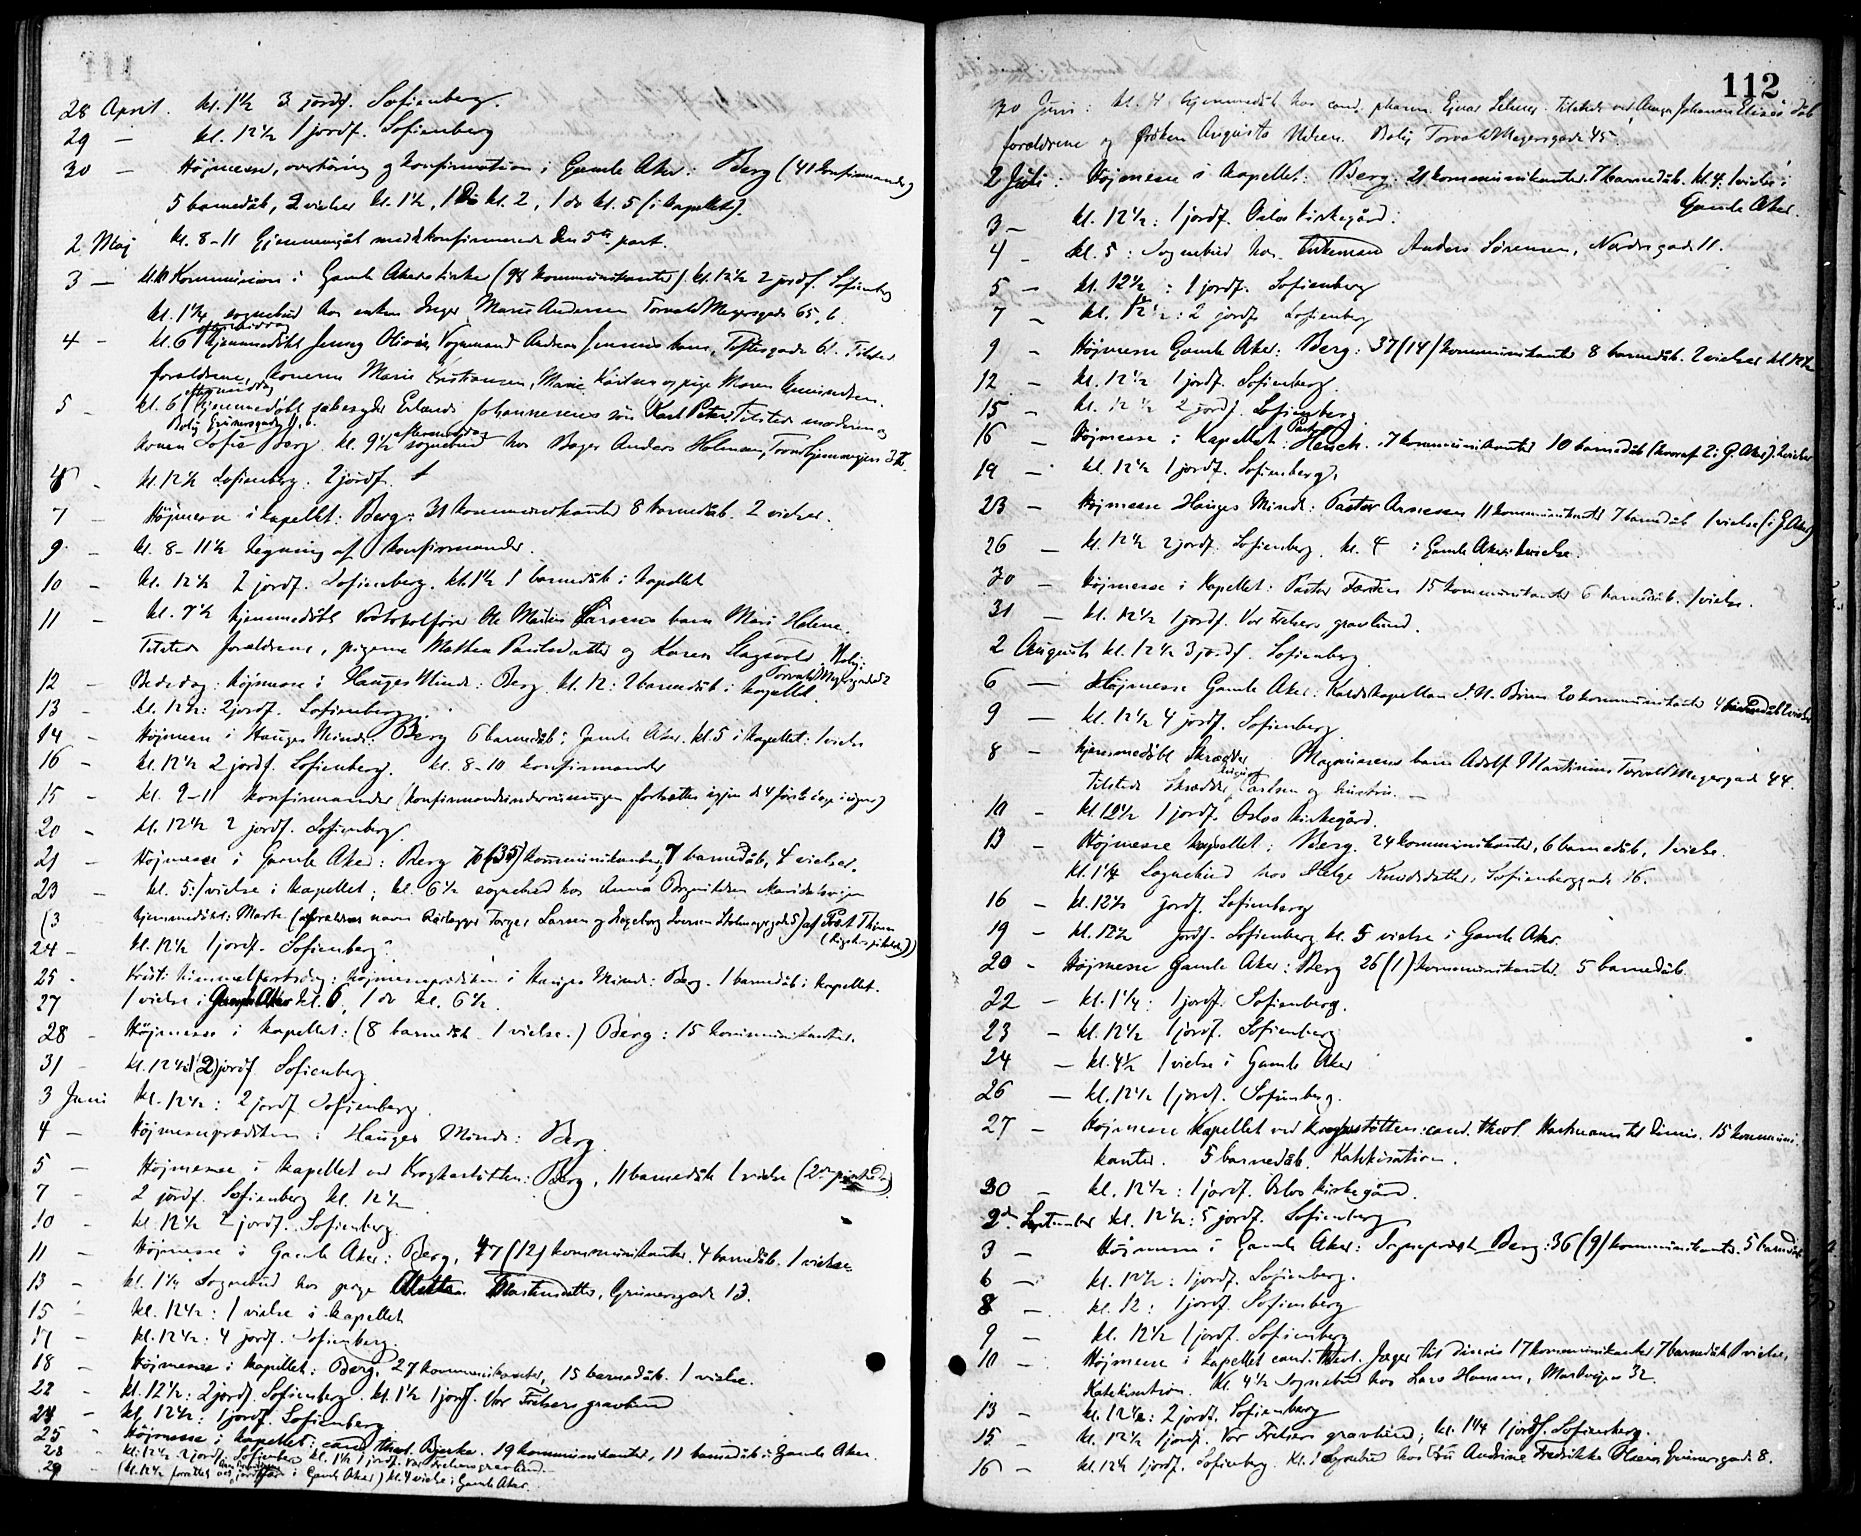 28 April. kl. 1½ 3 jordf. Sofienberg.
29 — kl. 12½ 1 jordf. Sofienberg
30 — Højmesse, overhøring og konfirmation i Gamle Aker: Berg (41 konfirmander)
5 barnedåb, 2 vielser kl. 1½, 1 kl. 2, 1 do kl. 5 (i kapellet).
2 Maj kl. 8-11
3 — Kommunion i Gamle Akers kirke (98 kommunikanter). kl. 12½ 2 jordf. Sofienberg
sognebud hos enken Inger Marie Andersen Torvald Meyersgade 65, b.
4 - kl. 6 eftermiddag hjemmedøbt
forældrene, konerne Marie Kristiansen, Marie Karlsen og pige Maren
5 - kl. 6 eftermiddag hjemmedøbt Johannesens søn Karl Peter. Tilstede moderen og
konen Sofie Berg. kl. 9½ eftermiddag sognebud hos Bager Anders
- kl. 12½ Sofienberg. 2 jordf.
7 - Højmesse i kapellet: Berg: 31 kommunikanter 8 barnedåb. 2 vielser.
9 - kl. 8-11½ tegning af konfirmander.
10 - kl. 12½ 2 jordf. Sofienberg. kl. 1½ 1 barnedåb i kapellet
11 - kl. 7½ hjemmedøbt Protokolfører Ole Martin Larsens barn
Tilstede forældrene, pigerne Mathea Paulsdatter og Karen Slagsvold. Bolig:
Torvald Meyersgade 52
12 - Bededag: Højmesse i Hauges Minde: Berg. kl. 12: 2 barnedåb i kapellet.
13 - kl. 12½: 2 jordf. Sofienberg.
14 - Højmesse i Hauges Minde: Berg 6 barnedåb i Gamle Aker. kl. 5 i kapellet: 1 vielse
16 - kl. 12½ 2 jordf. Sofienberg. kl. 8-10 konfirmander
15 - kl. 9-11 konfirmander
20 - kl. 12½ 2 jordf. Sofienberg.
21 - Højmesse i Gamle Aker: Berg 70 (35) kommunikanter, 7 barnedåb, 4 vielser.
23 - kl. 5: 1 vielse i kapellet; kl. 6½ sognebud hos Anna
(3 hjemmedøbt: Marte
24 - kl. 12½ 1 jordf. Sofienberg.
25 - Kristi himmelfartsdag: Højmesseprædiken i Hauges Minde: Berg. 1 barnedåb i kapellet.
27 1 vielse i Gamle Aker kl. 6, 1 do kl. 6½.
28 - Højmesse i kapellet: (8 barnedåb 1 vielse.) Berg: 15 kommunikanter.
31 - kl. 12½ (2) jordf Sofienberg.
3 Juni kl. 12½: 2 jordf Sofienberg.
4 — Højmesseprædiken i Hauges Minde: Berg.
5 — Højmesse i kapellet ved Krogharstøtten: Berg, 11 barnedåb 1 vielse
7 - 2 jordf. Sofienberg kl. 12½
10 - kl. 12½ 2 jordf. Sofienberg.
11 - Højmesse i Gamle Aker: Berg, 47 (12) kommunikanter. 4 barnedåb. 1 vielse
13 - kl. 1¼ Sognebud hos pige Martinsdatter, Grünersgade 13.
15 - kl. 12½: 1 vielse i kapellet
17 - kl. 12½: 4 jordf. Sofienberg.
18 - Højmesse i kapellet: Berg, 27 kommunikanter, 15 barnedåb. 1 vielse.
22 - kl. 12½: 2 jordf. Sofienberg. kl. 1½ 1 jordf. Vor Frelsers gravlund
24 - kl. 12½: 1 jordf. Sofienberg
25 Højmesse i kapellet: cand. theol. Bjerke. 19 kommunikanter, 11 barnedåb i Gamle Aker.
28 - kl. 12½ 2 jordf. Sofienberg kl. 1½ 1 jordf. Vor Frelsers gravlund.
29 - i Gamle Aker) kl. 4 vielse i Gamle Aker.
112
30 Juni: kl. 4 hjemmedåb hos cand. pharm.
forældrene og frøken Augusta Bolig Torvald Meyersgade 45.
2 Juli: Højmesse i kapellet: Berg. 21 kommunikanter. 7 barnedåb. kl. 4. 1 vielse i
Gamle Aker.
3 — kl. 12½: 1 jordf. Oslo kirkegård.
4 - kl. 5: Sognebud hos Anders Sørensen, Nordregade 11.
5 - kl. 12½: 1 jordf. Sofienberg
7 - kl. 12½: 2 jordf. Sofienberg
9 - Højmesse Gamle Aker: Berg: 37 (14) kommunikanter 8 barnedåb. 2 vielser
12 - kl. 12½ 1 jordf. Sofienberg.
15 - kl. 12½ 2 jordf. Sofienberg.
16 - Højmesse i kapellet: Pastor Hauch. 7 kommunikanter 10 barnedåb (hvoraf 2 i G. Aker). 2 vielser
19 - kl. 12½ 1 jordf. Sofienberg.
23 - Højmesse Hauges Minde: Pastor Arnesen 11 kommunikanter 7 barnedåb 1 vielse (i G. Aker)
26 - kl. 12½ 2 jordf. Sofienberg. kl. 4 i Gamle Aker 1 vielse.
30 - Højmesse i kapellet: Pastor 15 kommunikanter 6 barnedåb. 1 vielse.
31 - kl. 12½ 1 jordf. Vor Frelsers gravlund.
2 August kl. 12½ 3 jordf. Sofienberg.
6 - Højmesse Gamle Aker. 20 kommunikanter 4 barnedåb 2 vielser
9 - kl. 12½ 4 jordf. Sofienberg.
8 - hjemmedøbt Skrædder Magnusens barn Adolf Martinius Torvald Meyersgade 44.
Tilstede Skrædder Carlsen og hustru.
10 - kl. 12½ 1 jordf. Oslo kirkegård.
13 - Højmesse kapellet: Berg. 24 kommunikanter, 6 barnedåb, 1 vielse.
kl. 1¼ Sognebud hos Helge Knudsdatter, Sofienberggade 16.
16 - kl. 12½ jordf. Sofienberg
19 - kl. 12½ jordf. Sofienberg kl. 5 vielse i Gamle Aker.
20 - Højmesse Gamle Aker: Berg 26 (1) kommunikanter 5 barnedåb.
22 - kl. 1¼: 1 jordf. Sofienberg.
23 - kl. 12½ 1 jordf. Sofienberg
24 - kl. 4½ 1 vielse i Gamle Aker
26 - kl. 12½ 1 jordf. Sofienberg.
27 - Højmesse kapellet ved Krogharstøtten: cand. theol. Hartmann til Dimis. 15 kommuni
kanter. 5 barnedåb. Katekisation.
30 - kl. 12½: 1 jordf. Oslo kirkegård.
2 September kl. 12½: 5 jordf. Sofienberg
3 - Højmesse i Gamle Aker: Sogneprest Berg: 36 (9) kommunikanter. 5 barnedåb
6 - kl. 12½: 1 jordf. Sofienberg.
8 - kl. 12: 1 jordf. Sofienberg
9 - kl. 12½ 1 jordf. Sofienberg
10 - Højmesse i kapellet cand. theol. Jæger til Dimis 17 kommunikanter 7 barnedåb 1 vielse,
Katekisation. Kl. 4½ Sognebud hos Lars Hansen, Markveien 32.
13 - kl. 12½: 2 jordf. Sofienberg
15 - kl. 12½ 1 jordf. Vor Frelsers gravlund; kl. 1¼ 1 jordf. Sofienberg.
16 - kl. 12½ 1 jordf. Sofienberg. Kl. 1 Sognebud hos Fru Andrine Fredrikke Grünersgade 8.